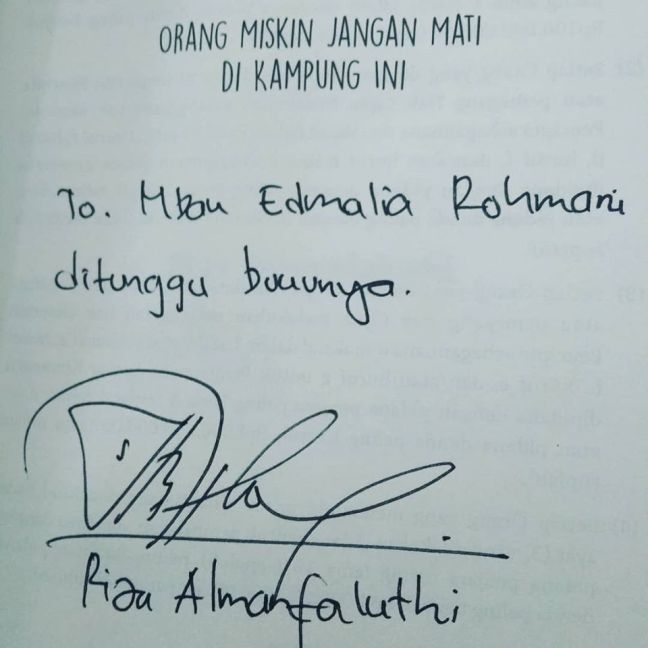 ORANG MISKIN JANGAN MATI
DI KAMPUNG INI
To. Mbau Edmalia Rohmani
ditunggu bukunya.
Riza Almanfaluthi